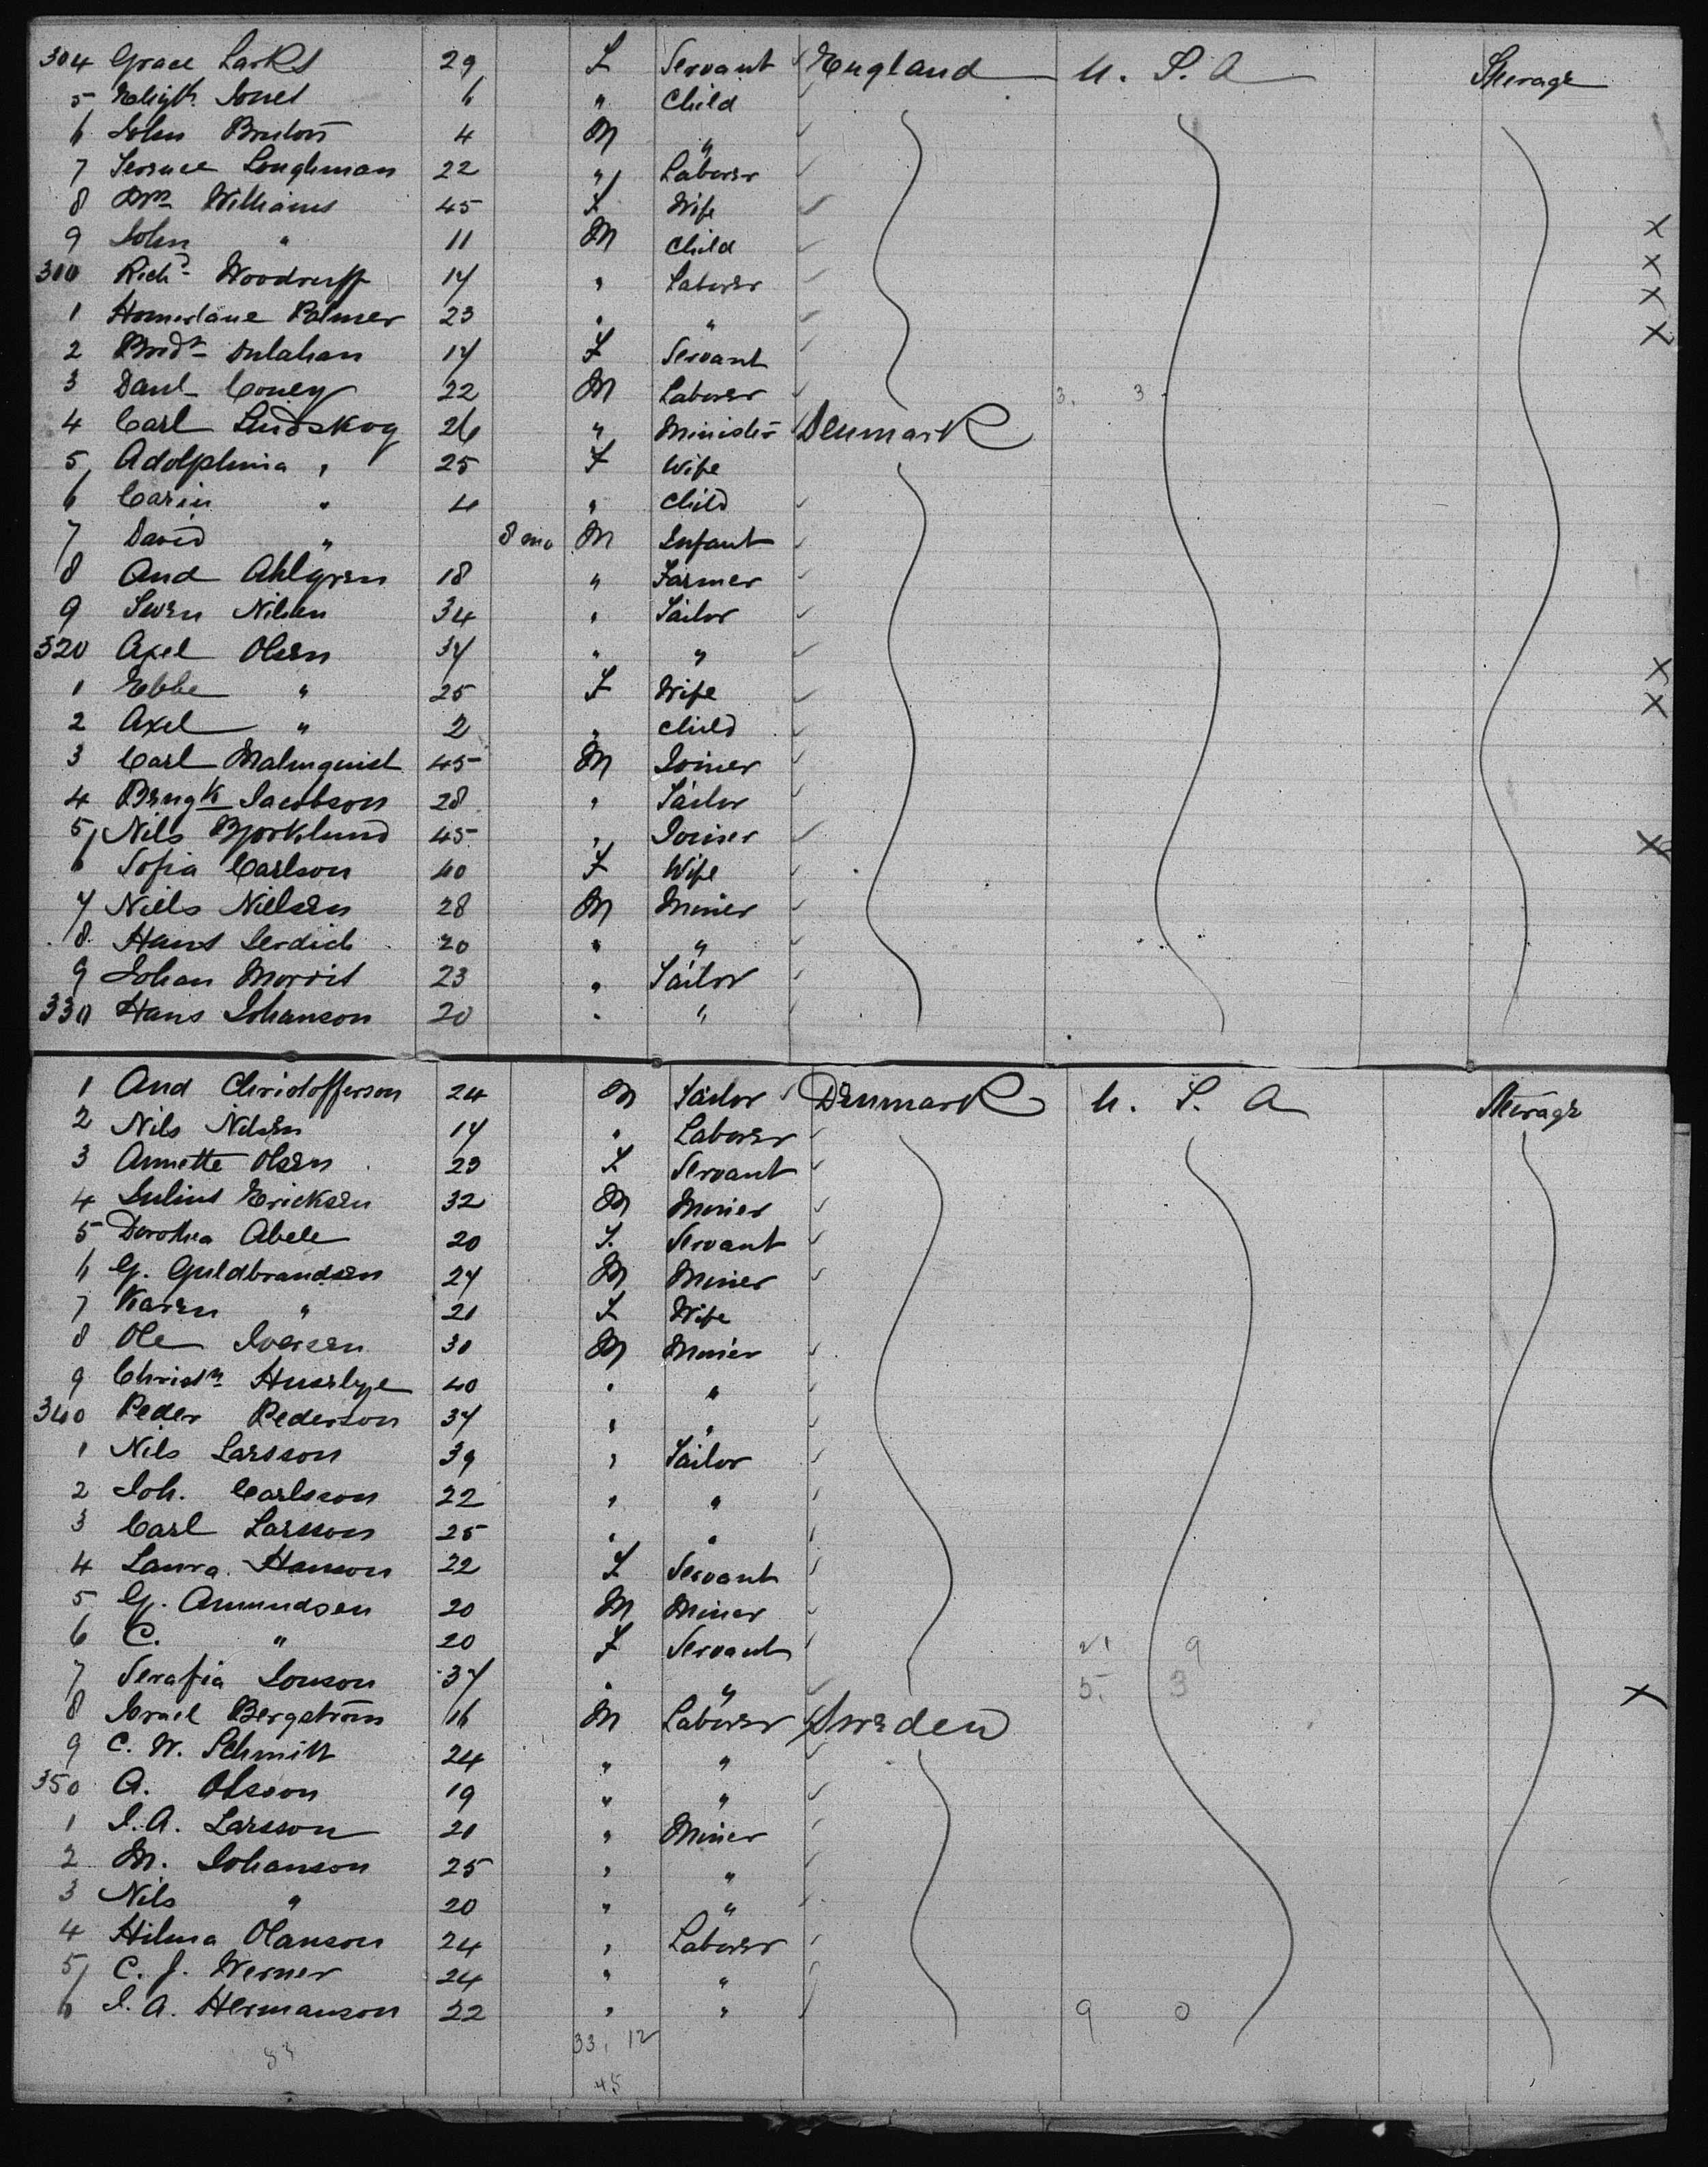 304 Grace Larks 29 F Servant England U. S. A Steerage
5 Elizth Jones 6 " Child
6 John Bruton 4 M "
7 Terence Loughman 22 " Laborer
8 Williams 45 F Wife
9 John " 11 M Child
310 Richd Woodruff 17 " Laborer
1 Palmer 23 " "
2 Bridt 17 F Servant
3 Danl Coney 22 M Laborer 3. 3
4 Carl Lindskog 26 " Minister Denmark
5 Adolphina " 25 F Wife
6 Carin " 4 " Child
7 David " 8 mo M Infant
8 And Ahlgren 18 " Farmer
9 Swen Nilsen 34 " Tailor
320 Axel Olsen 37 " "
1 Ebbe " 25 F Wife
2 Axel " 2 " Child
3 Carl Malmquist 45 M Joiner
4 Bengt Jacobson 28 " Tailor
5 Nils Bjorklund 45 " Joiner
6 Sofia Carlson 40 F Wife
7 Niels Nielsen 28 M Miner
8 Hans 20 " "
9 Johan Morris 23 " Tailor
330 Hans Johanson 20 " "
1 And Christofferson 24 M Tailor Denmark U. S. A Steerage
2 Nils Nilsen 17 " Laborer
3 Annette Olsen 23 F Servant
4 Julius Ericksen 32 M Miner
5 Dorothea Abele 20 F Servant
6 G. Guldbrandsen 27 M Miner
7 Karen " 21 F Wife
8 Ole Iversen 30 M Miner
9 Christn Huselye 40 " "
340 Peder Pederson 37 " "
1 Nils Larsson 39 " Tailor
2 Joh. Carlsson 22 " "
3 Carl Larsson 25 " "
4 Laura Hanson 22 F Servant
5 G. Amundsen 20 M Miner
6 C. " 20 F Servant 21 9
7 Serafia Jonson 37 " " 5. 3
8 Israel Bergström 16 M Laborer Sweden
9 C. W. Schmitt 24 " "
350 A. Olsson 19 " "
1 J. A. Larsson 21 " Miner
2 M. Johanson 25 " "
3 Nils " 20 " "
4 Hilma Olanson 24 " Laborer
5 C. J. Werner 24 " "
6 J. A. Hermanson 22 " " 9 0
33. 12
45